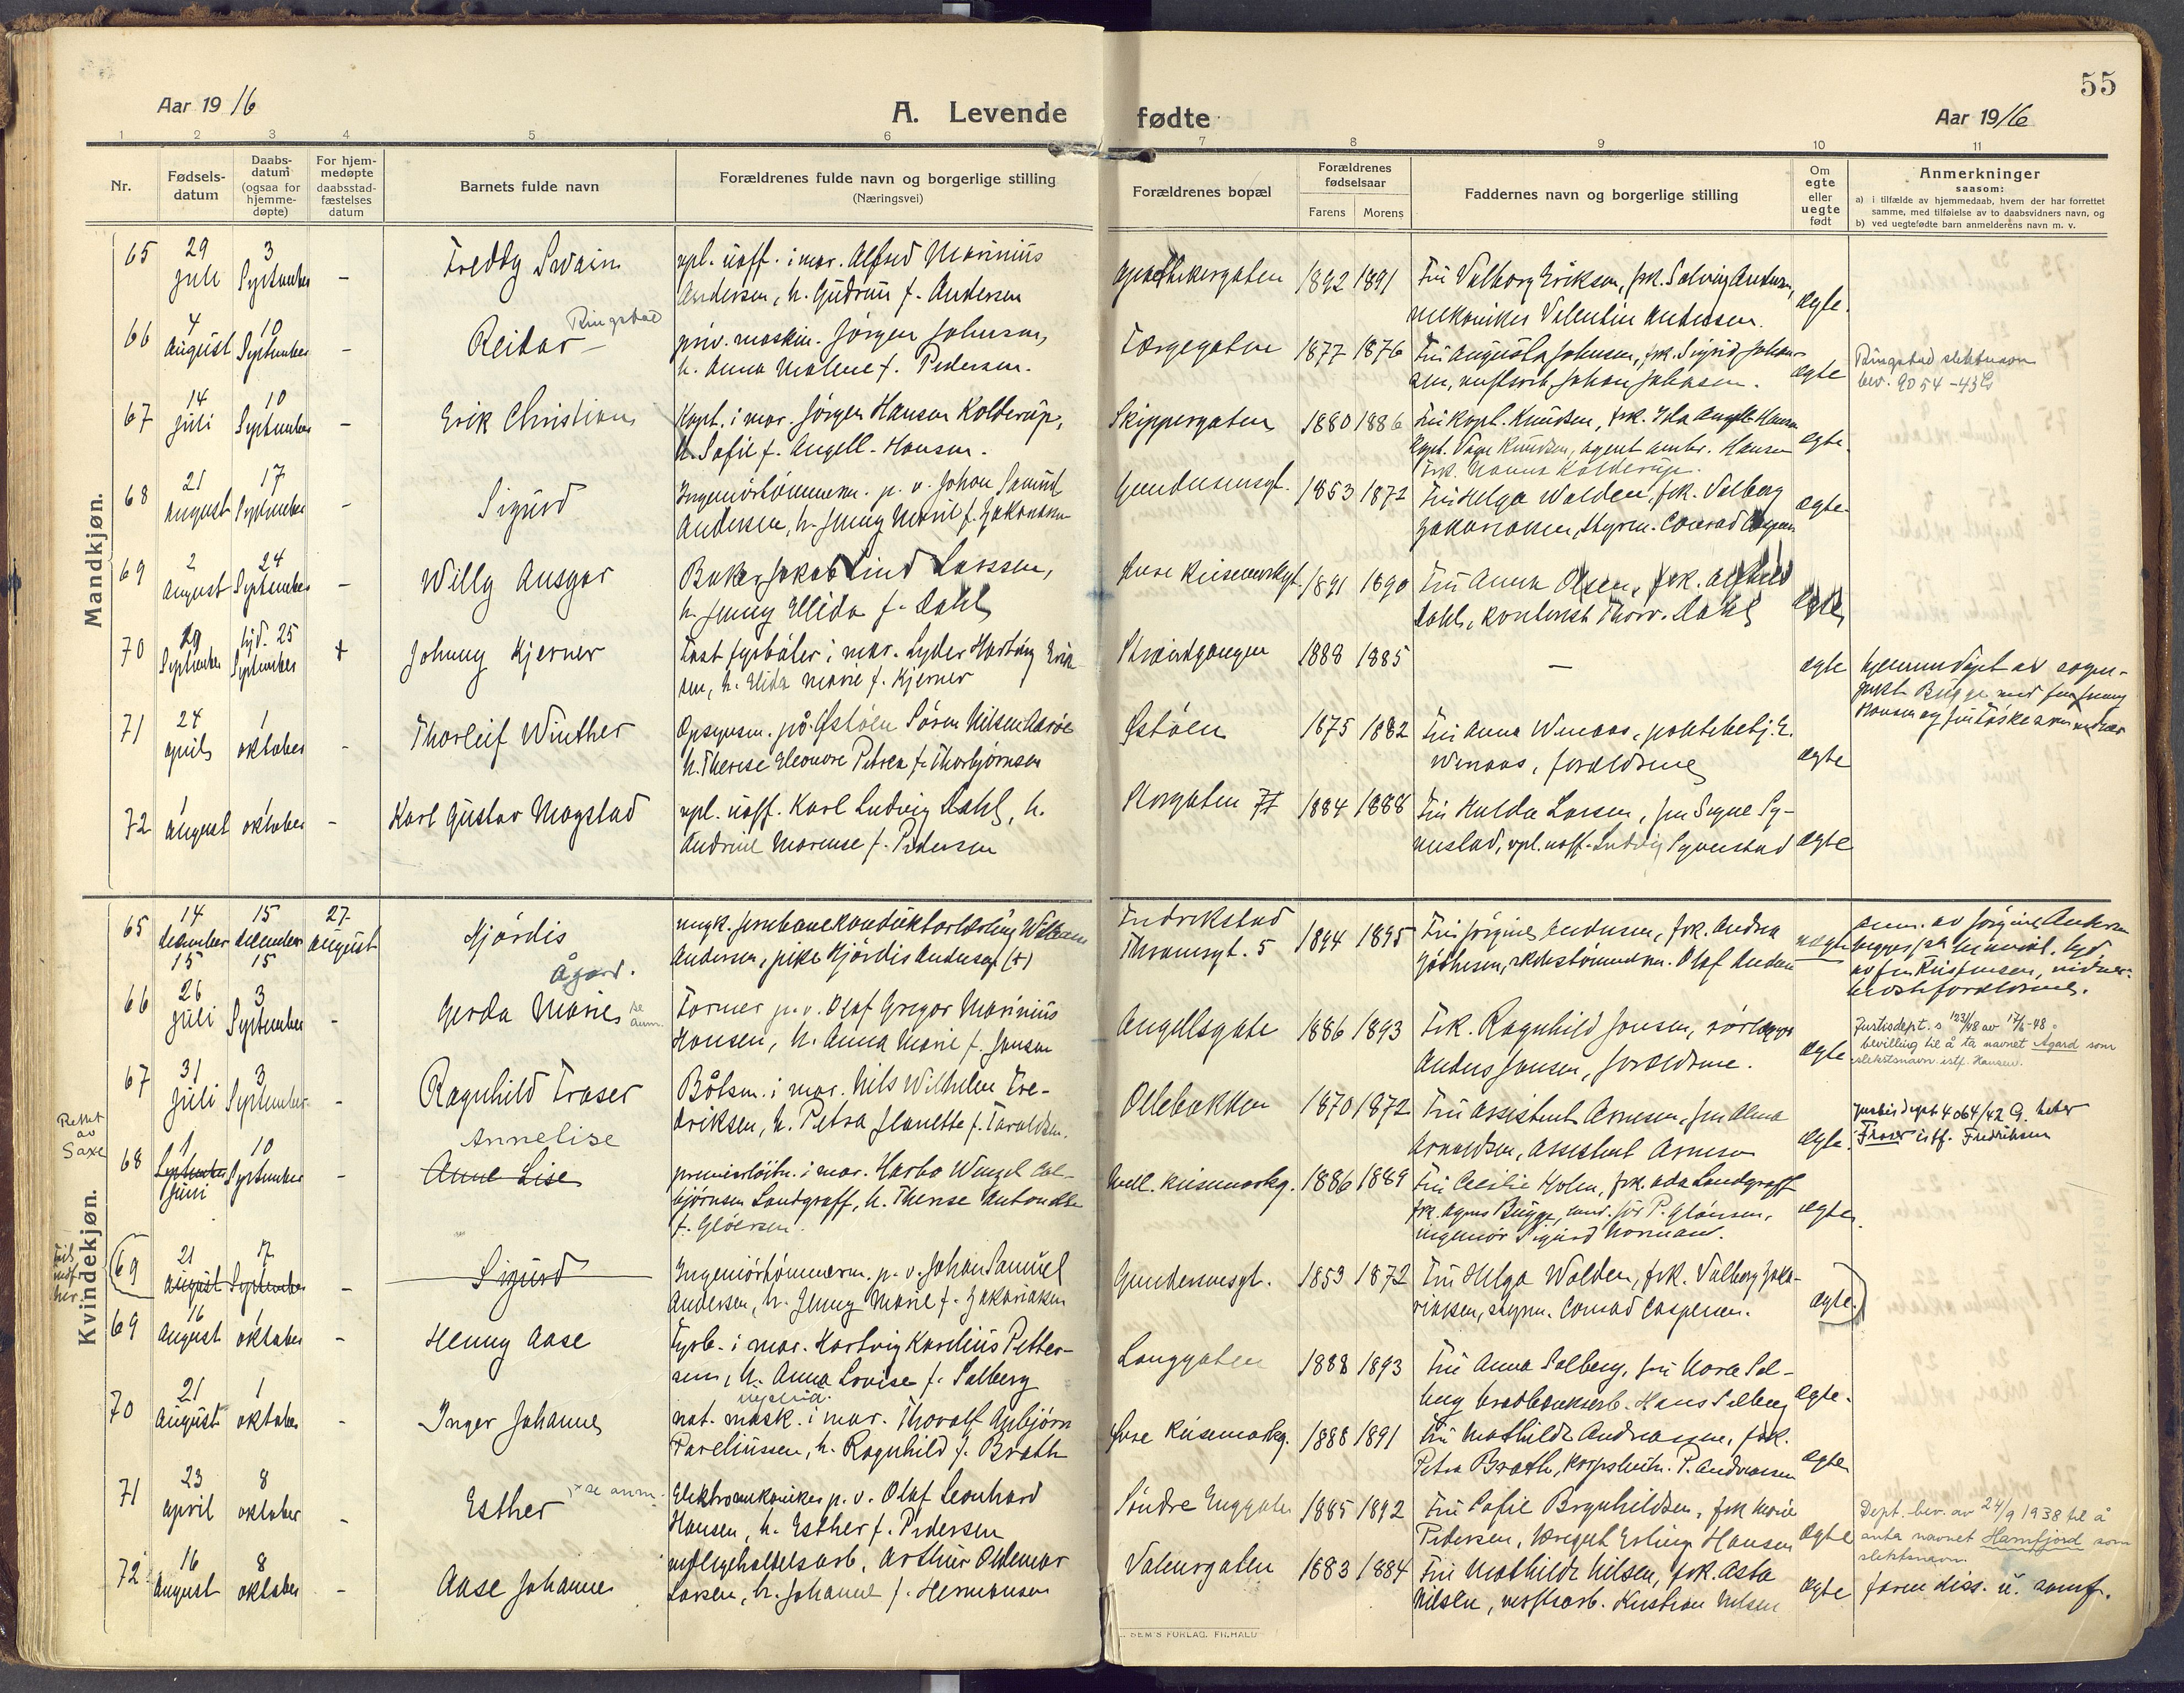 55
Aar 1916
A. Levende fødte
Aar 1916
1 2 3 4 5 6 7 8 9 10 11
Nr.
Fødsels-
datum
Daabs-
datum
(ogsaa for
hjemme-
døpte)
For hjem-
medøpte
daabsstad-
fæstelses
datum
Barnets fulde navn
Forældrenes fulde navn og borgerlige stilling
(Næringsvei)
Forældrenes bopæl
Forældrenes
fødselsaar
Farens Morens
Faddernes navn og borgerlige stilling
Om
egte
eller
uegte
født
Anmerkninger
saasom:
a) i tilfælde av hjemmedaab, hvem der har forrettet
samme, med tilføielse av to daabsvidners navn, og
b) ved uegtefødte barn anmelderens navn m. v.
Mandkjøn.
65 29 juli 3 September - Freddy Svain
vpl. uoff. i mar. Alfred Marinius
Andersen, h. Gudrun f. Andersen
Apothekergaten 1892 1891
Fru Valborg Eriksen, frk. Solveig Andersen,
mekaniker Valentin Andersen. ægte.
66 4 august 10 September - Reidar - Ringstad
priv. maskin. Jørgen Johnsen,
h. Anna Malene f. Pedersen.
Færgegaten 1877 1876
Fru Augusta Johnsen, frk. Sigrid Johan-
sen, Johan Johnsen. ægte
Ringstad slektsnavn
bev. 9054-43
67 14 juli 10 September - Erik Christian
Kapt. i mar. Jørgen Hansen Kolderup,
h. Sofie f. Angell-Hansen.
Skippergaten 1880 1886
Fru kapt. Knudsen, frk. Ida Angell-Hansen
Kapt. Knudsen, agent Hansen
Frk. Hanna Kolderup. ægte.
68 21 august 17 September - Sigurd
Ingeniørtømmerm. p. v. Johan Samuel
Andersen, h. Jenny Marie f. Zakariasen
Gundersensgt. 1853 1872
Fru Helga Walden, frk. Valborg
Zakariasen, styrm. Conrad Caspersen ægte
69 2 august 24 September - Willy Ansgar
Baker Jakob Lind Larssen,
h. Jenny Elida f. Dahl
1891 1890
Fru Anna Olsen, frk. Alfhild
Dahl, kontorist Thorv. Dahl ægte
70 29 September hjd. 25 September + Johnny Kjerner
Fast fyrbøter i mar. Lyder Hartvig Erik-
sen, h. Elida Marie f. Kjerner
Strandgangen 1888 1885 - ægte
hjemmedøpt av sogne-
prest Bugge med fru Jenny
Hansen og fru
71 24 april 1 oktober - Thorleif Winther
Opsynsm. på Østøen Søren Nilsen Aarøe
h. Therese Eleonore Petrea f. Thorbjørnsen
Østøen 1875 1882
Fru Anna Wenaas, politibetj. E.
Wenaas, forældrene ægte
72 1 august 1 oktober - Karl Gustav Magstad
vpl. uoff. Karl Ludvig Dahl, h.
Andrine Marense f. Pedersen
Storgaten 77 1884 1888
Fru Hulda Larsen, fru Signe Sy-
verstad, vpl. uoff. Ludvig Syverstad ægte
Kvindekjøn.
65 14 december 15 15 december 15 27 august Hjørdis
ungk. jernbanekonduktørlærling William
Andersen, pike Hjørdis Andersen (+)
Fredrikstad
1894 1895
Fru Jørgine Andersen, frk. Andrea
Olaf Andersen uægte
anm. av Jørgine Andersen
hjd.
av fru Kristensen, vidner:
forældrene.
66 26 juli 3 September - Gerda Marie Ågard. se anm.
Former p. v. Olaf Gregor Marinius
Hansen, h. Anna Marie f. Jensen
Angellsgate 1886 1893
Frk. Ragnhild Jensen, rørlægger
Anders Jensen, forældrene. ægte
Justisdept. s 123/48 av 17/6-48
bevilling til å ta navnet Ågard som
slektsnavn istf. Hansen.
67 31 juli 3 September - Ragnhild Fraser
Båtsm. i mar. Nils Wilhelm Fre-
driksen, h. Petra Jeanette f. Taraldsen.
Ollebakken 1870 1872
Fru assistent Arnesen, fru Alma
Arnoldsen, assistent Arnesen ægte.
Justisdept 4064/42 G. heter
Fraser istf. Fredriksen
Rettet
av
Saxe
68 1 September juni 10 September - Anne Lise Annelise
premierløitn. i mar. Harbo Wenzel Col-
bjørnsen Landgraff, h. Therese Antonette
f. Gløersen.
1886 1889
Fru Cecilie Holm, frk. Ada Landgraff
frk. Agnes Bugge, P. Gløersen,
ingeniør Sigurd Normann. ægte.
69 21 august 17 September - Sigurd
Ingeniørtømmerm. p. v. Johan Samuel
Andersen, h. Jenny Marie f. Zakariasen
Gundersensgt. 1853 1872
Fru Helga Walden, frk. Valborg Zaka-
riasen, styrm. Conrad Caspersen. ægte.
69 16 august 1 oktober - Henny Aase
Fyrb. i mar. Hartvig Kornelius Petter-
sen, h. Anna Lovise f. Solberg
Langgaten 1888 1893
Fru Anna Solberg, fru Karen Sol-
berg Hans Solberg ægte.
70 21 august 1 oktober - Inger Johanne
mask. i mar. Thoralf Asbjørn
Paveliussen, h. Ragnhild f. Braath
1888 1891
Fru Mathilde Andreassen, frk.
Petra Braath, P. Andreassen ægte
71 23 april 8 oktober - Esther x se anm.
Elektromekaniker p. v. Olaf Leonhard
Hansen, h. Esther f. Pedersen
Søndre Enggate 1885 1892
Fru Sofie Brynhildsen, frk Marie
Pedersen, Erling Hansen ægte
Dept. bev. av 24/9 1938 til å
anta navnet Hamfjord som
slektsnavn
72 16 august 8 oktober - Aase Johanne
Arthur Oldemar
Larsen, h. Johanne f. Hermansen
Valørgaten 1883 1884
Fru Mathilde Nilsen, frk. Asta
Nilsen, verftsarb. Kristian Nilsen ægte
faren diss. u. samf.